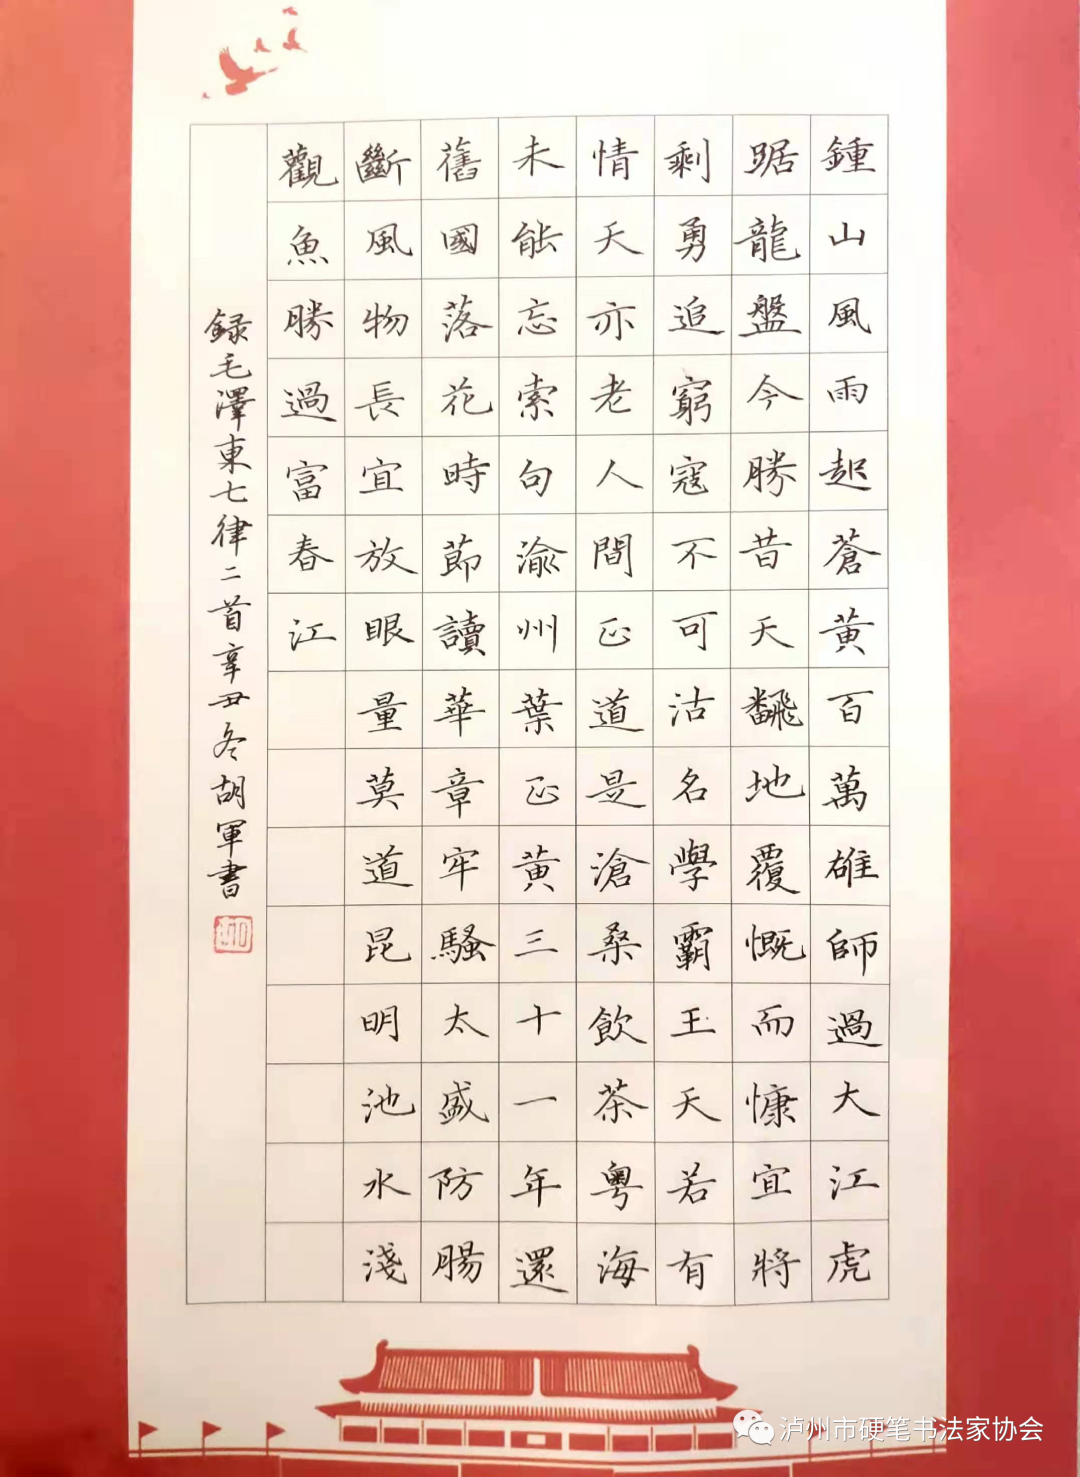 鍾山風雨起蒼黃百萬雄師過大江虎
踞龍盤今勝昔天飜地覆慨而慷宜將
剩勇追窮寇不可沽名學霸王天若有
情天亦老人間正道是滄桑飲茶粵海
未能忘索句渝州葉正黃三十一年還
舊國落花時節讀華章牢騷太盛防腸
斷風物長宜放眼量莫道昆明池水淺
觀魚勝過富春江
録毛澤東七律二首辛丑冬胡軍書
泸州市硬笔书法家协会